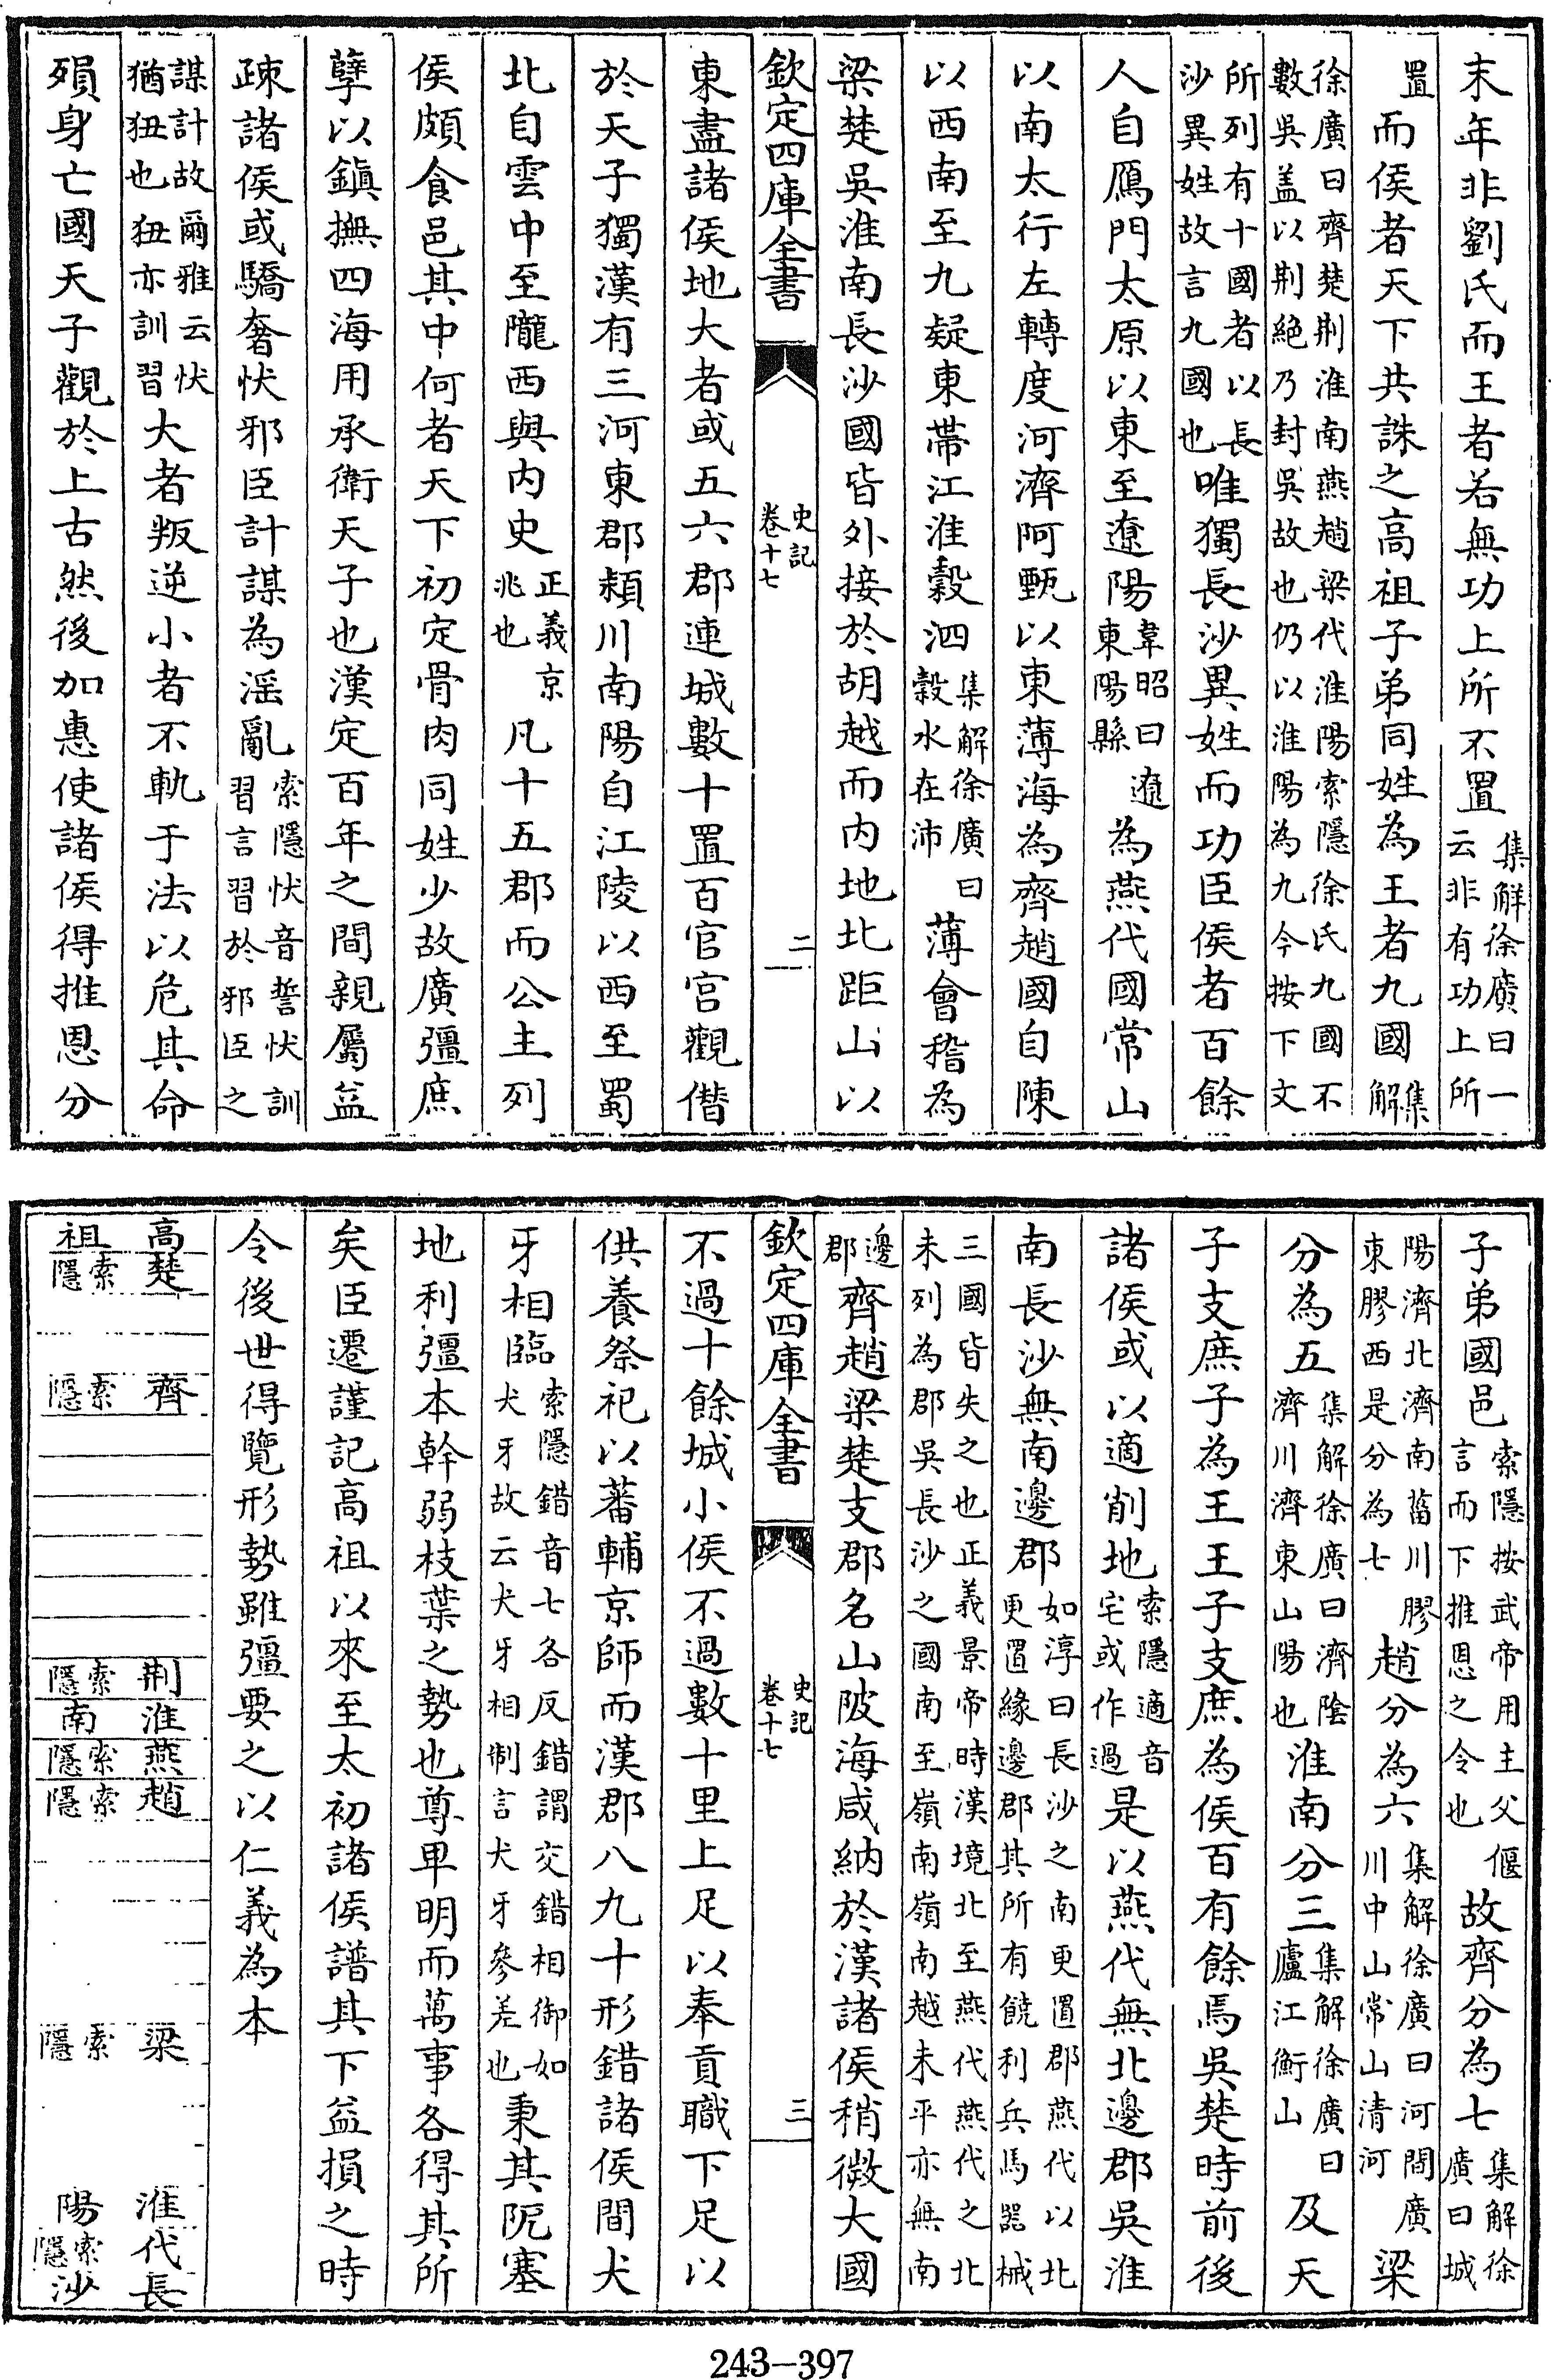 末年非劉氏而王者若無功上所不置集解徐廣曰一云非有功上所
置而侯者天下共誅之高祖子弟同姓為王者九國集解
徐廣曰齊楚荆淮南燕趙梁代淮陽索隱徐氏九國不數吳盖以荆絶乃封吳故也仍以淮陽為九今按下文
所列有十國者以長沙異姓故言九國也唯獨長沙異姓而功臣侯者百餘
人自鴈門太原以東至遼陽韋昭曰遼東陽縣為燕代國常山
以南太行左轉度河濟阿甄以東薄海為齊趙國自陳
以西南至九疑東帶江淮穀泗集解徐廣曰穀水在沛薄會稽為
梁楚吳淮南長沙國皆外接於胡越而内地北距山以
欽定四庫全書
史記卷十七
二
東盡諸侯地大者或五六郡連城數十置百官宫觀僭
於天子獨漢有三河東郡潁川南陽自江陵以西至蜀
北自雲中至隴西與内史正義京兆也凡十五郡而公主列
侯頗食邑其中何者天下初定骨肉同姓少故廣彊庶
孽以鎮撫四海用承衛天子也漢定百年之間親屬益
疎諸侯或驕奢忕邪臣計謀為淫亂索隱忕音誓忕訓習言習於邪臣之
謀計故爾雅云忕猶狃也狃亦訓習大者叛逆小者不軌于法以危其命
殞身亡國天子觀於上古然後加惠使諸侯得推恩分
子弟國邑索隱按武帝用主父偃言而下推恩之令也故齊分為七集解徐廣曰城
陽濟北濟南菑川膠東膠西是分為七趙分為六集解徐廣曰河間廣川中山常山清河梁
分為五集解徐廣曰濟隂濟川濟東山陽也淮南分三集解徐廣曰廬江衡山及天
子支庶子為王王子支庶為侯百有餘焉吳楚時前後
諸侯或以適削地索隱適音宅或作過是以燕代無北邊郡吳淮
南長沙無南邊郡如淳曰長沙之南更置郡燕代以北更置緣邊郡其所有饒利兵馬器械
三國皆失之也正義景帝時漢境北至燕代燕代之北未列為郡吳長沙之國南至嶺南嶺南越未平亦無南
邊郡齊趙梁楚支郡名山陂海咸納於漢諸侯稍微大國
欽定四庫全書
史記卷十七
三
不過十餘城小侯不過數十里上足以奉貢職下足以
供養祭祀以蕃輔京師而漢郡八九十形錯諸侯間犬
牙相臨索隱錯音七各反錯謂交錯相御如犬牙故云犬牙相制言犬牙參差也秉其阨塞
地利彊本幹弱枝葉之勢也尊卑明而萬事各得其所
矣臣遷謹記高祖以來至太初諸侯譜其下益損之時
令後世得覽形勢雖彊要之以仁義為本
高祖
楚索隱
齊索隱
荆索隱
淮南
燕索隱
趙索隱
梁索隱
淮陽
代索隱
長沙
243-397